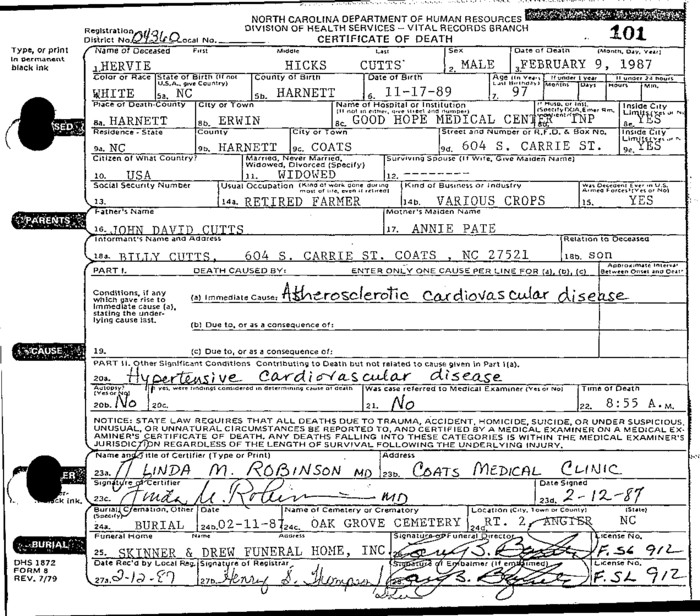 NORTH CAROLINA DEPARTMENT OF HUMAN RESOURCES
DIVISION OF HEALTH SERVICES – VITAL RECORDS BRANCH
CERTIFICATE OF DEATH
Registration District No. 04360 Local No. 101
Type, or print in permanent black ink
Name of Deceased First Middle Last Sex Date of Death (Month, Day, Year)
1. HERVIE HICKS CUTTS 2. MALE 3. FEBRUARY 9, 1987
Color or Race State of Birth (If not U.S.A., give Country) County of Birth Date of Birth Age (In Years Last Birthday) If under 1 year If under 24 hours
Months Days Hours Min.
WHITE 5a. NC 5b. HARNETT 6. 11-17-89 7. 97
Place of Death-County City or Town Name of Hospital or Institution (If not in either, give street and number) If Hosp. or Inst. Inside City Limits (Yes or No)
8a. HARNETT 8b. ERWIN 8c. GOOD HOPE MEDICAL CENTER INP 8e. YES
Residence - State County City or Town Street and Number or R.F.D. & Box No. Inside City Limits (Yes or No)
9a. NC 9b. HARNETT 9c. COATS 9d. 604 S. CARRIE ST. 9e. YES
Citizen of What Country? Married, Never Married, Widowed, Divorced (Specify) Surviving Spouse (If Wife, Give Maiden Name)
10. USA 11. WIDOWED 12. --------
Social Security Number Usual Occupation (Kind of work done during most of life, even if retired) Kind of Business or Industry Was Decedent Ever in U.S. Armed Forces? (Yes or No)
13. 14a. RETIRED FARMER 14b. VARIOUS CROPS 15. YES
PARENTS
Father's Name Mother's Maiden Name
16. JOHN DAVID CUTTS 17. ANNIE PATE
Informant's Name and Address Relation to Deceased
18a. BILLY CUTTS, 604 S. CARRIE ST. COATS, NC 27521 18b. son
PART I. DEATH CAUSED BY: ENTER ONLY ONE CAUSE PER LINE FOR (a), (b), (c) Approximate Interval Between Onset and Death
Conditions, if any which gave rise to immediate cause (a), stating the underlying cause last.
(a) Immediate Cause: Atherosclerotic cardiovascular disease
(b) Due to, or as a consequence of:
CAUSE
19. (c) Due to, or as a consequence of:
PART II. Other Significant Conditions Contributing to Death but not related to cause given in Part I(a).
20a. Hypertensive cardiovascular disease
Autopsy? (Yes or No) If yes, were findings considered in determining cause of death Was case referred to Medical Examiner (Yes or No) Time of Death
20b. No 20c. 21. No 22. 8:55 A.M.
NOTICE: STATE LAW REQUIRES THAT ALL DEATHS DUE TO TRAUMA, ACCIDENT, HOMICIDE, SUICIDE, OR UNDER SUSPICIOUS,
UNUSUAL, OR UNNATURAL CIRCUMSTANCES BE REPORTED TO, AND CERTIFIED BY A MEDICAL EXAMINER ON A MEDICAL EX-
AMINER'S CERTIFICATE OF DEATH. ANY DEATHS FALLING INTO THESE CATEGORIES IS WITHIN THE MEDICAL EXAMINER'S
JURISDICTION REGARDLESS OF THE LENGTH OF SURVIVAL FOLLOWING THE UNDERLYING INJURY.
Name and Title of Certifier (Type or Print) Address
23a. LINDA M. ROBINSON MD 23b. COATS MEDICAL CLINIC
Signature of Certifier Date Signed
23c. Linda M. Robinson MD 23d. 2-12-87
Burial, Cremation, Other (Specify) Date Name of Cemetery or Crematory Location (City, Town or County) (State)
24a. BURIAL 24b. 02-11-87 24c. OAK GROVE CEMETERY 24d. RT. 2, ANGIER NC
BURIAL
Funeral Home Name Address Signature of Funeral Director License No.
25. SKINNER & DREW FUNERAL HOME, INC. F.SL 912
DHS 1872
FORM 8
REV. 7/79
Date Rec'd by Local Reg. Signature of Registrar Signature of Embalmer (If embalmed) License No.
27a. 2-12-87 27b. Henry S. Thompson F.SL 912